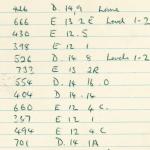 426 D. 14,9 Lame
666 E 13 2 E Levels 1-2
430 E 12.5
398 E 12 1
526 D. 14 8 Levels 1-2
733 E 13 2R
554 D. 14 16.0
404 D. 14.14
660 E 12 4 C.
357 E 12 1
494 E 12 4.C
701 D. 14 1A